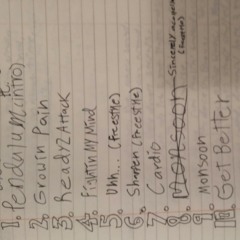 1. Pendulum (intro)
2. Growin Pain
3. Ready 2 Attack
4. Fightin My Mind
5. Uhh... (Freestyle)
6. Shenron (Freestyle)
7. Cardio
8. Monsoon Sincerely
9. Monsoon
10. Get Better